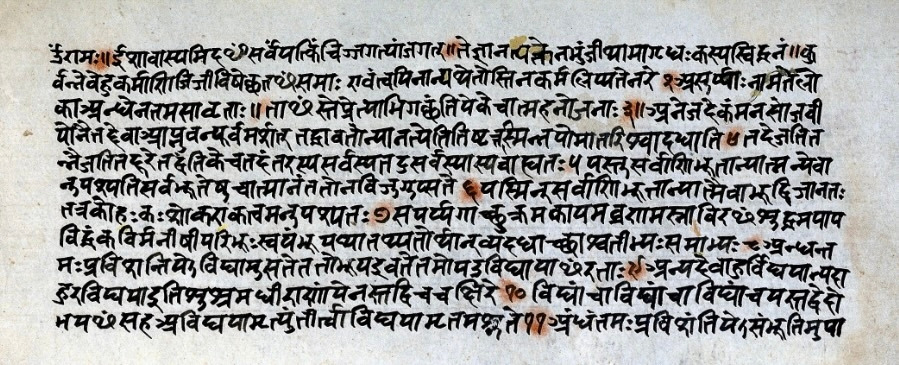 ॐरामः॥ईशावास्यमिदꣳसर्वंयत्किंचिज्जगत्यांजगत्॥तेनत्यक्तेनभुंजीथामागृधःकस्यस्विद्धनं॥कु
र्वन्नेवेहकर्माणिजिजीविषेछतꣳसमाः एवंत्वयिनान्यथेतोस्तिनकर्मलिप्यतेनरे २असुर्य्याःनामतेलो
काअन्धेनतमसावृताः॥ताꣳस्तेप्रेत्याभिगछंतियेकेचात्महनोजनाः३॥अनेजदेकंमनसोजवी
योनैनद्देवाआप्नुवन्पूर्वमर्शत् तद्धावतोन्यानत्येतितिष्टत्तस्मिन्नपोमातरिश्वादधाति४तदेजतितन्
नैजतितद्दूरेतद्वंतिकेतदंतरस्यसर्वस्यतदुसर्वस्यास्यबाह्यतः५यस्तुसर्वाणिभूतान्यात्मन्येवा
नुपश्यतिसर्वभूतेषुचात्मानंततोनविजुगुप्सते६यस्मिन्सर्वाणिभूतान्यात्मैवाभूद्विजानतः
तत्रकोहःकःशोकएकत्वमनुपश्यतः७सपर्य्यगाच्छुक्रमकायमव्रणमस्नाविरꣳशुद्धमपाप
विद्धंकविर्मनीषीपरिभूःस्वयंभूर्याथातथ्यतोर्थान्व्यदधाच्छाश्वतीभ्यःसमाभ्यः८अन्धन्त
मःप्रविशन्तियेऽविद्यामुपासतेततोभूयइवतेतमोयउविद्यायाꣳरताः९अन्यदेवाहुर्विद्ययान्यदा
हुरविद्ययाइतिशुश्रुमधीराणांयेनस्तद्विचचक्षिरे१०विद्यांचाविद्यांचयस्तद्वेदो
भयꣳसहअविद्ययामृत्युंतीर्त्वाविद्ययामृतमश्नुते११अंधंतमःप्रविशंतियेऽसंभूतिमुपा